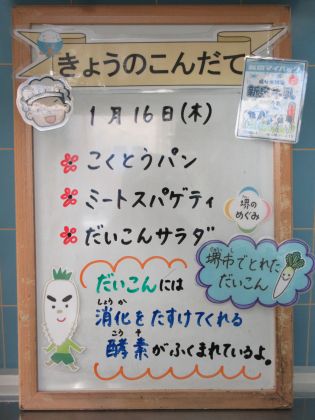 きょうのこんだて
1月16日(木)
こくとうパン
ミートスパゲティ
だいこんサラダ
堺の
めぐみ
堺市でとれた
だいこん
だいこんには
しょうか
消化をたすけてくれる
こうそ
酵素がふくまれているよ。